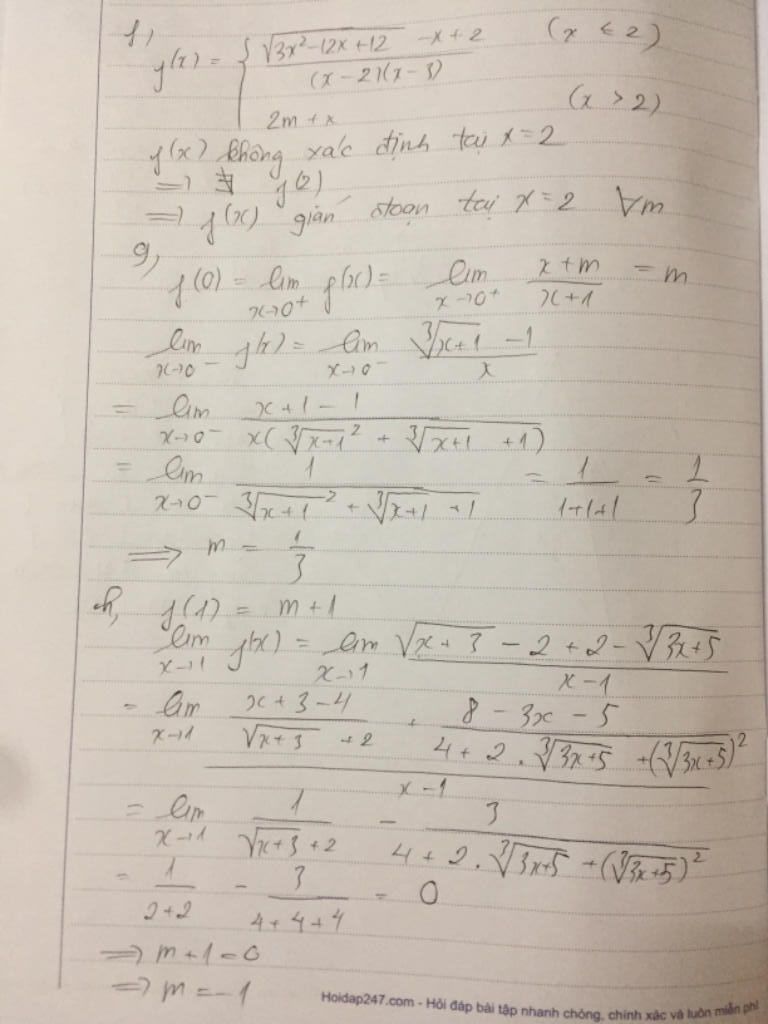 f,
f(x) = { (√(3x²-12x+12) - x + 2) / ((x-2)(x-3)) (x ≤ 2)
2m + x (x > 2)
f(x) không xác định tại x = 2
=> ∄ f(2)
=> f(x) gián đoạn tại x = 2 ∀m
g,
f(0) = lim x→0⁺ f(x) = lim x→0⁺ (x+m)/(x+1) = m
lim x→0⁻ f(x) = lim x→0⁻ (∛(x+1) - 1)/x
= lim x→0⁻ (x+1-1)/(x(∛(x+1)² + ∛(x+1) + 1))
= lim x→0⁻ 1/(∛(x+1)² + ∛(x+1) + 1) = 1/(1+1+1) = 1/3
=> m = 1/3
h, f(1) = m+1
lim x→1 f(x) = lim x→1 (√(x+3) - 2 + 2 - ∛(3x+5))/(x-1)
= lim x→1 ((x+3-4)/(√(x+3) + 2) + (8-3x-5)/(4+2.∛(3x+5) + (∛(3x+5))²))/(x-1)
= lim x→1 1/(√(x+3)+2) - 3/(4+2.∛(3x+5) + (∛(3x+5))²)
= 1/(2+2) - 3/(4+4+4) = 0
=> m+1=0
=> m=-1
Hoidap247.com - Hỏi đáp bài tập nhanh chóng, chính xác và luôn miễn phí